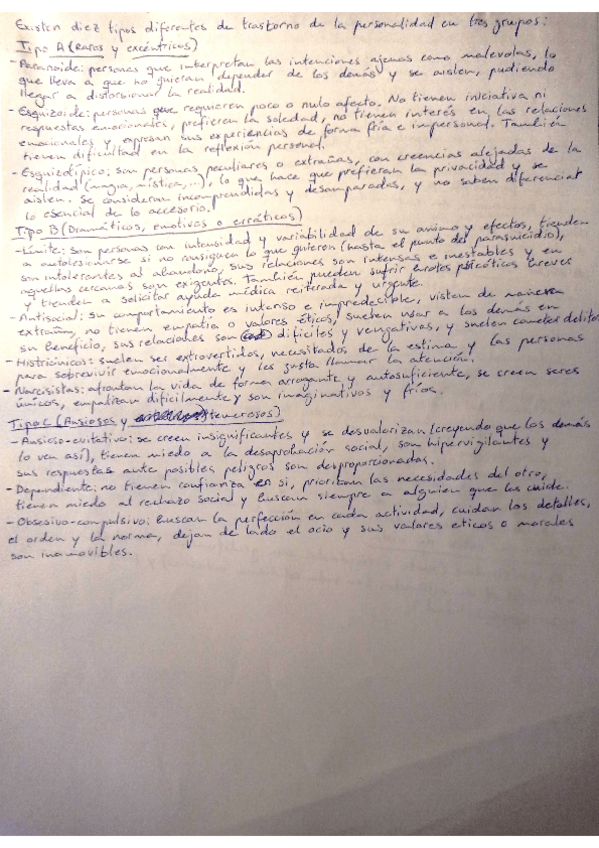 Existen diez tipos diferentes de trastorno de la personalidad en tres grupos:
Tipo A (Raros y excéntricos)
- Paranoide: personas que interpretan las intenciones ajenas como malevolas, lo
que lleva a que no quieran depender de los demás y se aislen, pudiendo
llegar a distorsionar la realidad.
- Esquizoide: personas que requieren poco o nulo afecto. No tienen iniciativa ni
respuestas emocionales, prefieren la soledad, no tienen interés en las relaciones
emocionales y expresan sus experiencias de forma fría e impersonal. También
tienen dificultad en la reflexión personal.
- Esquizotípico: son personas peculiares o extrañas, con creencias alejadas de la
realidad (magia, mística,...), lo que hace que prefieran la privacidad y se
aislen. Se consideran incomprendidas y desamparadas, y no saben diferenciar
lo esencial de lo accesorio.
Tipo B (Dramáticos, emotivos o erráticos)
- Límite: son personas con intensidad y variabilidad de su animo y efectos, tienden
a autolesionarse si no consiguen lo que quieren (hasta el punto del parasuicidio),
son intolerantes al abandono, sus relaciones son intensas e inestables y en
aquellas cercanas son exigentes. También pueden sufrir brotes psicóticos breves
y tienden a solicitar ayuda médica reiterada y urgente.
- Antisocial: su comportamiento es intenso e impredecible, visten de manera
extraña, no tienen empatía o valores éticos, suelen usar a los demás en
su beneficio, sus relaciones son difíciles y vengativas, y suelen cometer delitos
- Histriónicos: suelen ser extrovertidos, necesitados de la estima y las personas
para sobrevivir emocionalmente y les gusta llamar la atención.
- Narcisistas: afrontan la vida de forma arrogante y autosuficiente, se creen seres
únicos, empatizan difícilmente y son imaginativos y fríos.
Tipo C (Ansiosos y temerosos)
- Ansioso-evitativo: se creen insignificantes y se desvalorizan (creyendo que los demás
lo ven así), tienen miedo a la desaprobación social, son hipervigilantes y
sus respuestas ante posibles peligros son desproporcionadas.
- Dependiente: no tienen confianza en si, priorizan las necesidades del otro,
tienen miedo al rechazo social y buscan siempre a alguien que los cuide.
- Obsesivo-compulsivo: buscan la perfección en cada actividad, cuidan los detalles,
el orden y la norma, dejan de lado el ocio y sus valores eticos o morales
son inamovibles.